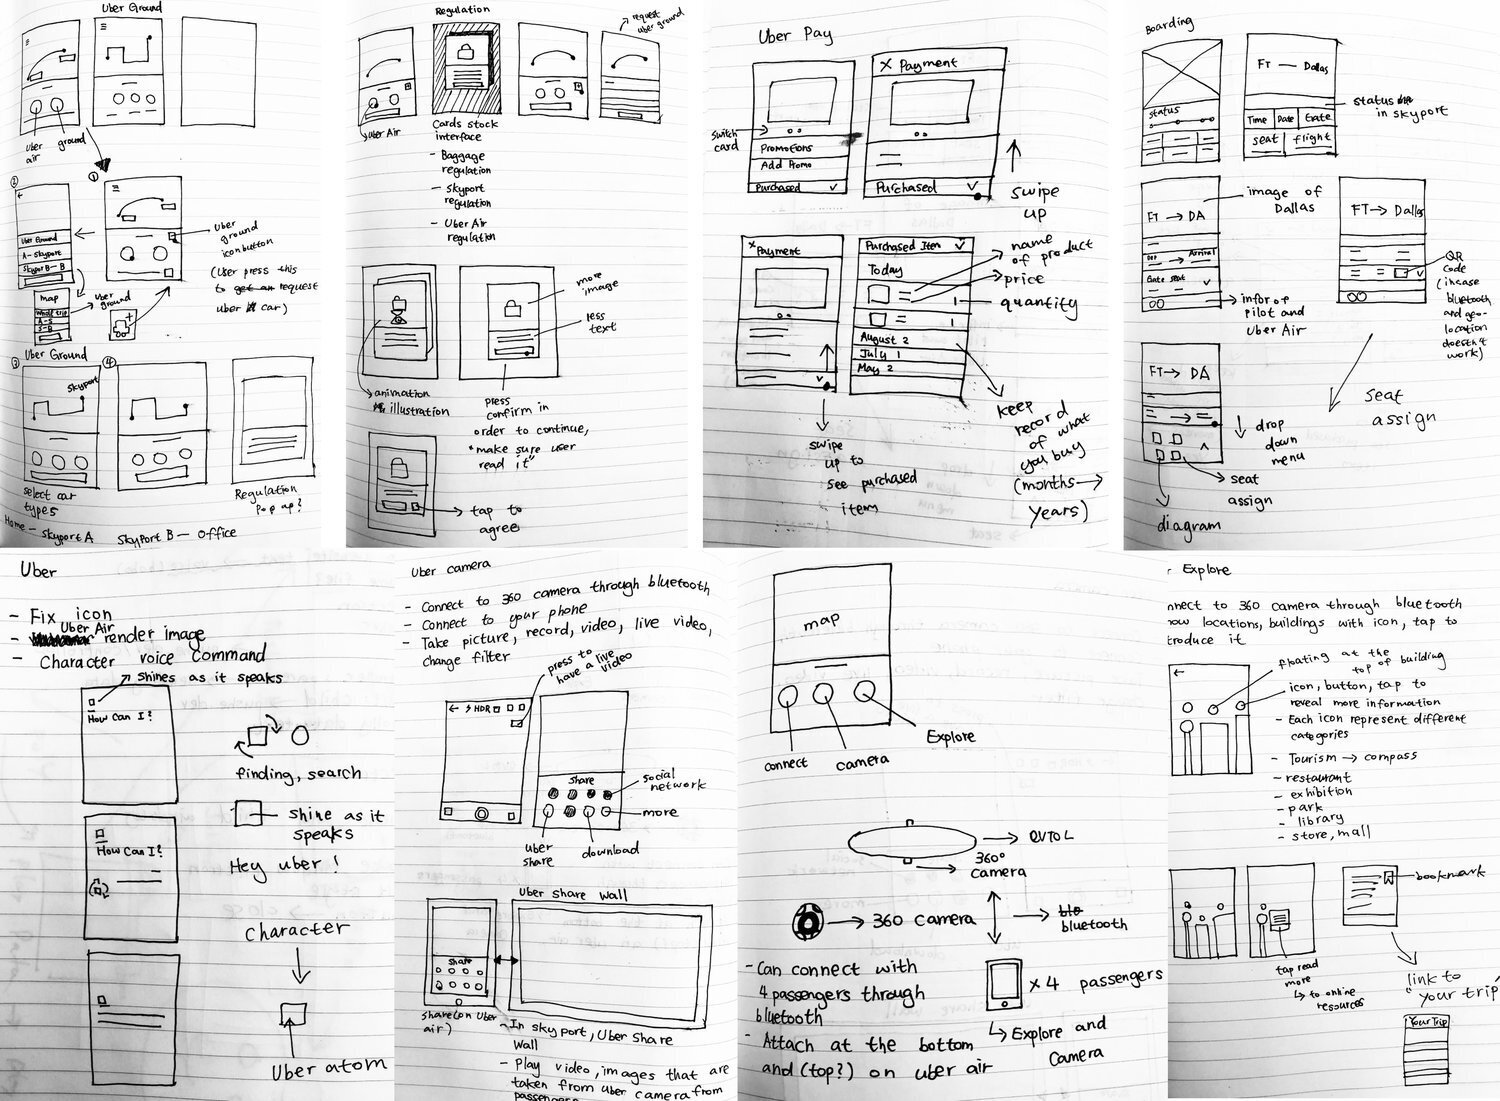 Uber Ground
uber
air
ground
②
①
Uber Ground
A - Skyport
Skyport B - B
map
Whole trip
A-S
S-B
uber
ground
uber
ground
icon button
(User press this
to request
uber car)
③
Uber Ground
④
Skyport
select car
types
Regulation
Pop up?
Home - skyport A
Skyport B - Office
Regulation
request
uber ground
Uber Air
Cards stock
interface
- Baggage
regulation
- Skyport
regulation
- Uber Air
regulation
more
image
less
text
animation
illustration
press
confirm in
order to continue,
"make sure user
read it"
tap to
agree
Uber Pay
X Payment
switch
card
Promotions
Add Promo
Purchased
Purchased
swipe
up
X Payment
Purchased Item
Today
1
1
August 2
July 1
May 2
name
of product
price
quantity
swipe
up to
see purchased
item
keep
record
of what
you buy
(months →
years)
Boarding
status
FT — Dallas
Time Date Gate
seat flight
status
in skyport
FT → DA
Arrival
Gate seat
image of
Dallas
infor of
pilot and
Uber Air
FT → Dallas
QR
code
(incase
bluetooth
and geo-
location
doesn't
work)
FT → DA
drop
down
menu
seat
assign
seat
assign
diagram
Uber
- Fix icon
Uber Air
- render image
- Character voice command
shines as it speaks
How Can I?
finding, search
shine as it
speaks
Hey uber!
How Can I?
Character
Uber atom
Uber camera
- Connect to 360 camera through bluetooth
- Connect to your phone
- Take picture, record, video, live video,
change filter
press to
have a live
video
HDR
share
social
network
more
uber
share
download
Uber share Wall
share
share (on Uber
air)
- In skyport, Uber share
Wall
- Play video, images that are
taken from uber camera from
map
connect
camera
Explore
eVTOL
360°
camera
→ 360 camera
bluetooth
- Can connect with
4 passengers through
bluetooth
- Attach at the bottom
and (top?) on uber air
x 4 passengers
Explore and
Camera
Explore
nnect to 360 camera through bluetooth
ow locations, buildings with icon, tap to
troduce it
floating at the
top of building
icon, button, tap to
reveal more information
- Each icon represent different
categories
- Tourism → compass
- restaurant
- exhibition
- park
- library
- store, mall
bookmark
tap read
more
to online
resources
link to
"Your trip"
Your Trip